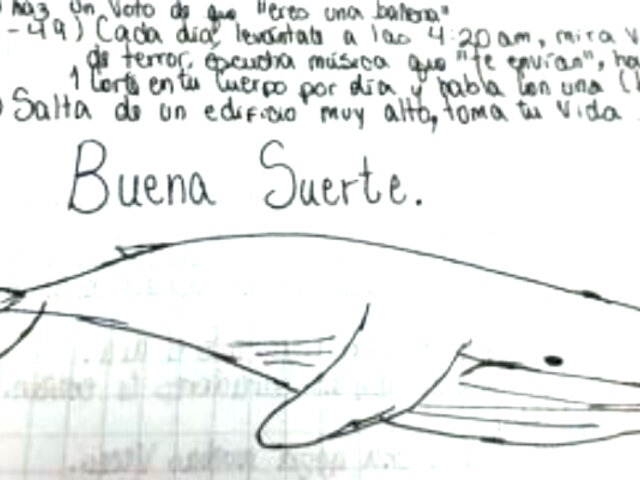 haz un voto de que "eres una ballena"
-49) Cada día, levántate a las 4:20 am, mira
de terror, escucha música que "te envían",
1 corte en tu cuerpo por día y habla con una
Salta de un edificio muy alto, toma tu vida
Buena Suerte.